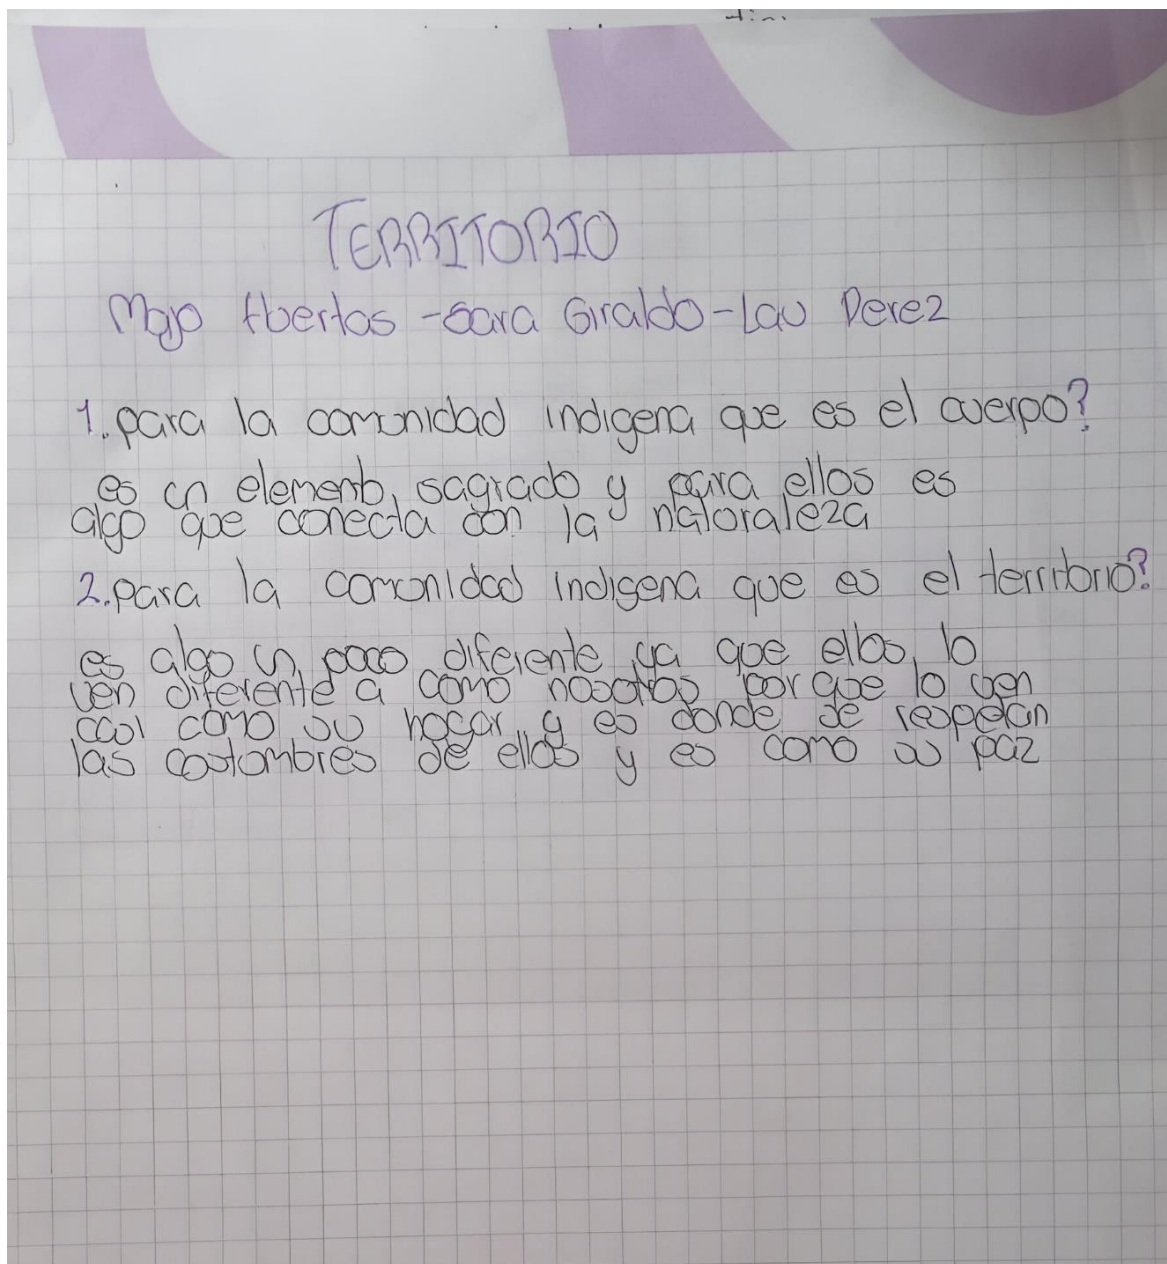 TERRITORIO
Majo - Sara Giraldo - Lau Perez
1. para la comunidad indigena que es el cuerpo?
es un elemento, sagrado y para ellos es
algo que conecta con la naturaleza
2. para la comunidad indigena que es el territorio?
es algo un poco diferente ya que ellos lo
ven diferente a como nosotros por que lo ven
casi como su hogar y es donde se respetan
las costumbres de ellos y es como su paz